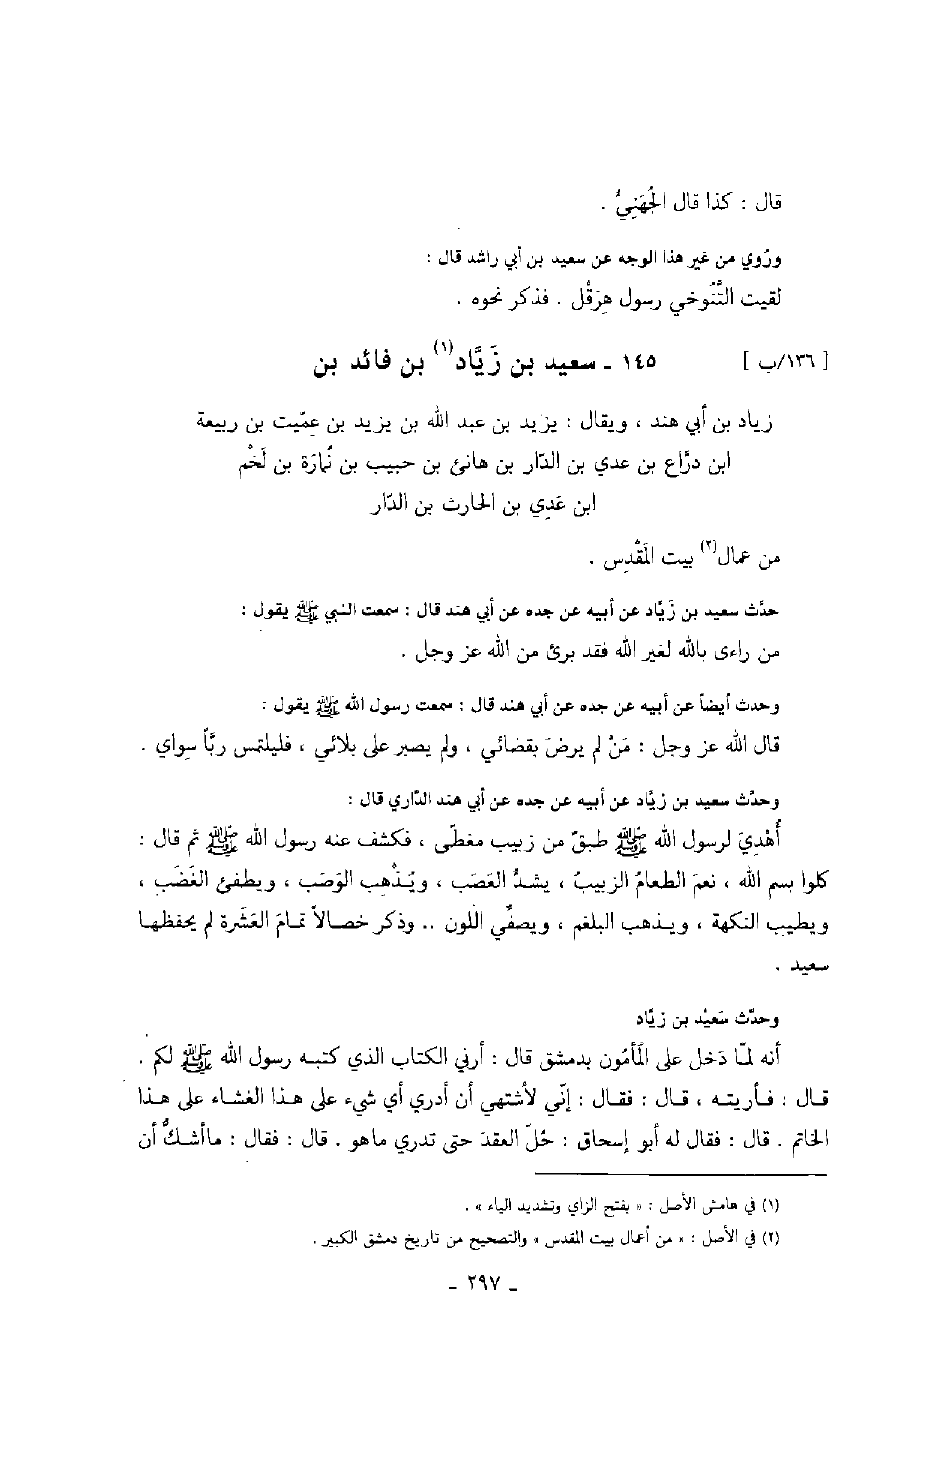 قال : كذا قال الجُهَنِيُّ .
ورُوي من غير هذا الوجه عن سعيد بن أبي راشد قال :
لقيت التَّنُوخي رسول هِرَقْل . فذكر نحوه .
[ ١٣٦/ب ] ١٤٥ ـ سعيد بن زَيَّاد(١) بن فائد بن
زياد بن أبي هند ، ويقال : يزيد بن عبد الله بن يزيد بن عِمّيت بن ربيعة
ابن درَّاع بن عدي بن الدّار بن هانئ بن حبيب بن نُمارَة بن لَخْم
ابن عَدِي بن الحارث بن الدّار
من عمال(٢) بيت المَقْدِس .
حدَّث سعيد بن زَيَّاد عن أبيه عن جده عن أبي هند قال : سمعت النبي ﷺ يقول :
من راءى بالله لغير الله فقد برئ من الله عز وجل .
وحدث أيضاً عن أبيه عن جده عن أبي هند قال : سمعت رسول الله ﷺ يقول :
قال الله عز وجل : مَنْ لم يرضَ بقضائي ، ولم يصبر على بلائي ، فليلتمس ربّاً سِواي .
وحدَّث سعيد بن زيَّاد عن أبيه عن جده عن أبي هند الدّاري قال :
أُهْدِيَ لرسول الله ﷺ طبقٌ من زبيب مغطّى ، فكشف عنه رسول الله ﷺ ثم قال :
كلوا بسم الله ، نعمَ الطعامُ الزبيبُ ، يشدُّ العَصَب ، ويُذْهب الوَصَب ، ويطفئ الغَضَب ،
ويطيب النكهة ، ويذهب البلغم ، ويصفِّي اللون .. وذكر خصالاً تمامَ العَشَرة لم يحفظها
سعيد .
وحدَّث سَعيْد بن زيَّاد
أنه لمّا دَخل على المأمون بدمشق قال : أرني الكتاب الذي كتبه رسول الله ﷺ لكم .
قال : فأريته ، قال : فقال : إنّي لأشتهي أن أدري أي شيء على هذا الغشاء على هذا
الخاتم . قال : فقال له أبو إسحاق : حُلّ العقدَ حتى تدري ماهو . قال : فقال : ماأشكُّ أن
(١) في هامش الأصل : « بفتح الزاي وتشديد الياء » .
(٢) في الأصل : « من أعمال بيت المقدس » والتصحيح من تاريخ دمشق الكبير .
ـ ٢٩٧ ـ